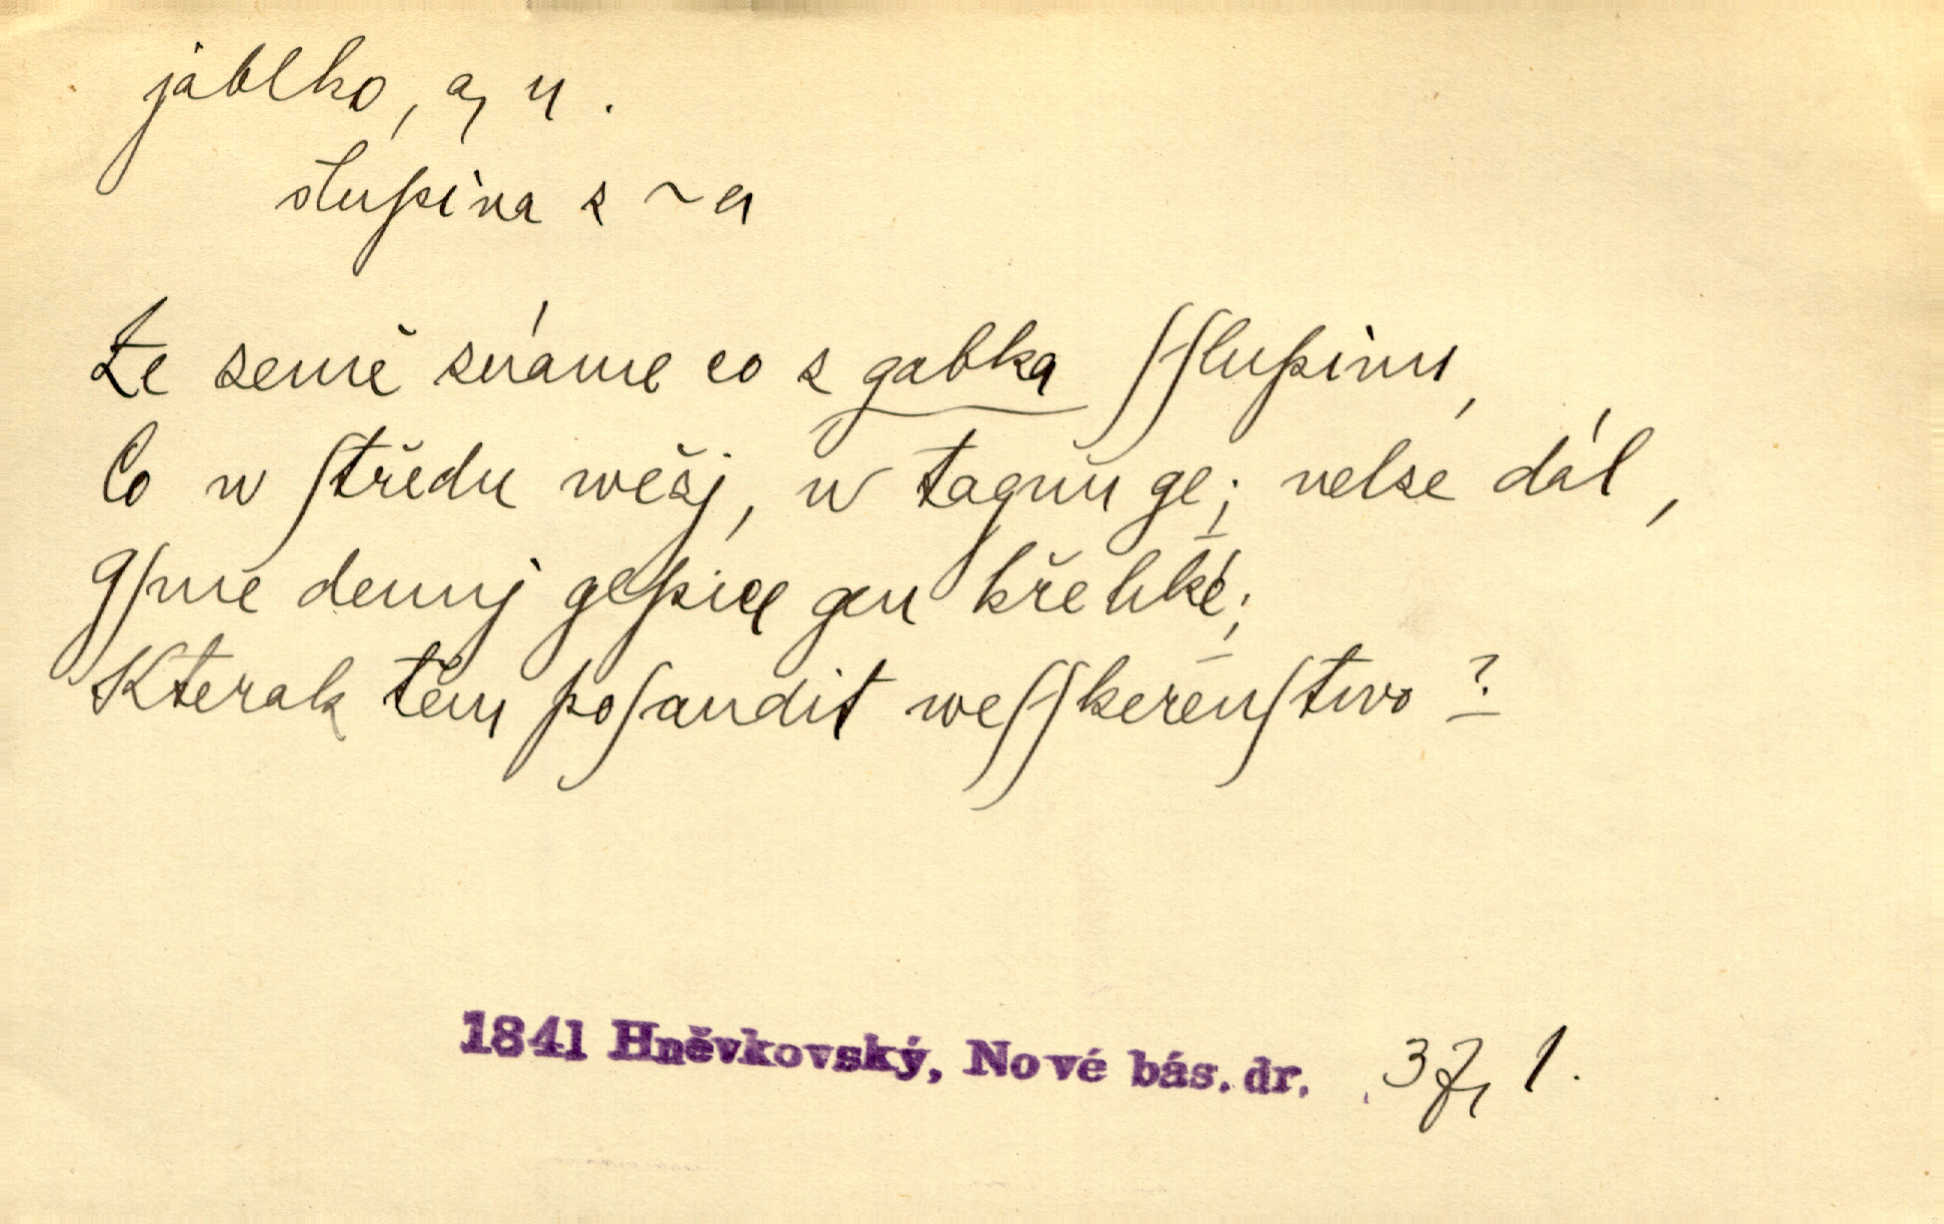 jablko, a, n.
slupina z ~a
Ze země známe co z gabka ſſlupinu,
Co w ſtředu wězj, w tagnu ge; nelze dál,
Gſmě dennj gepice gen křehké;
Kterak těm poſaudit weſſkerenſtwo?
1841 Hněvkovský, Nové bás. dr. 37, 1.